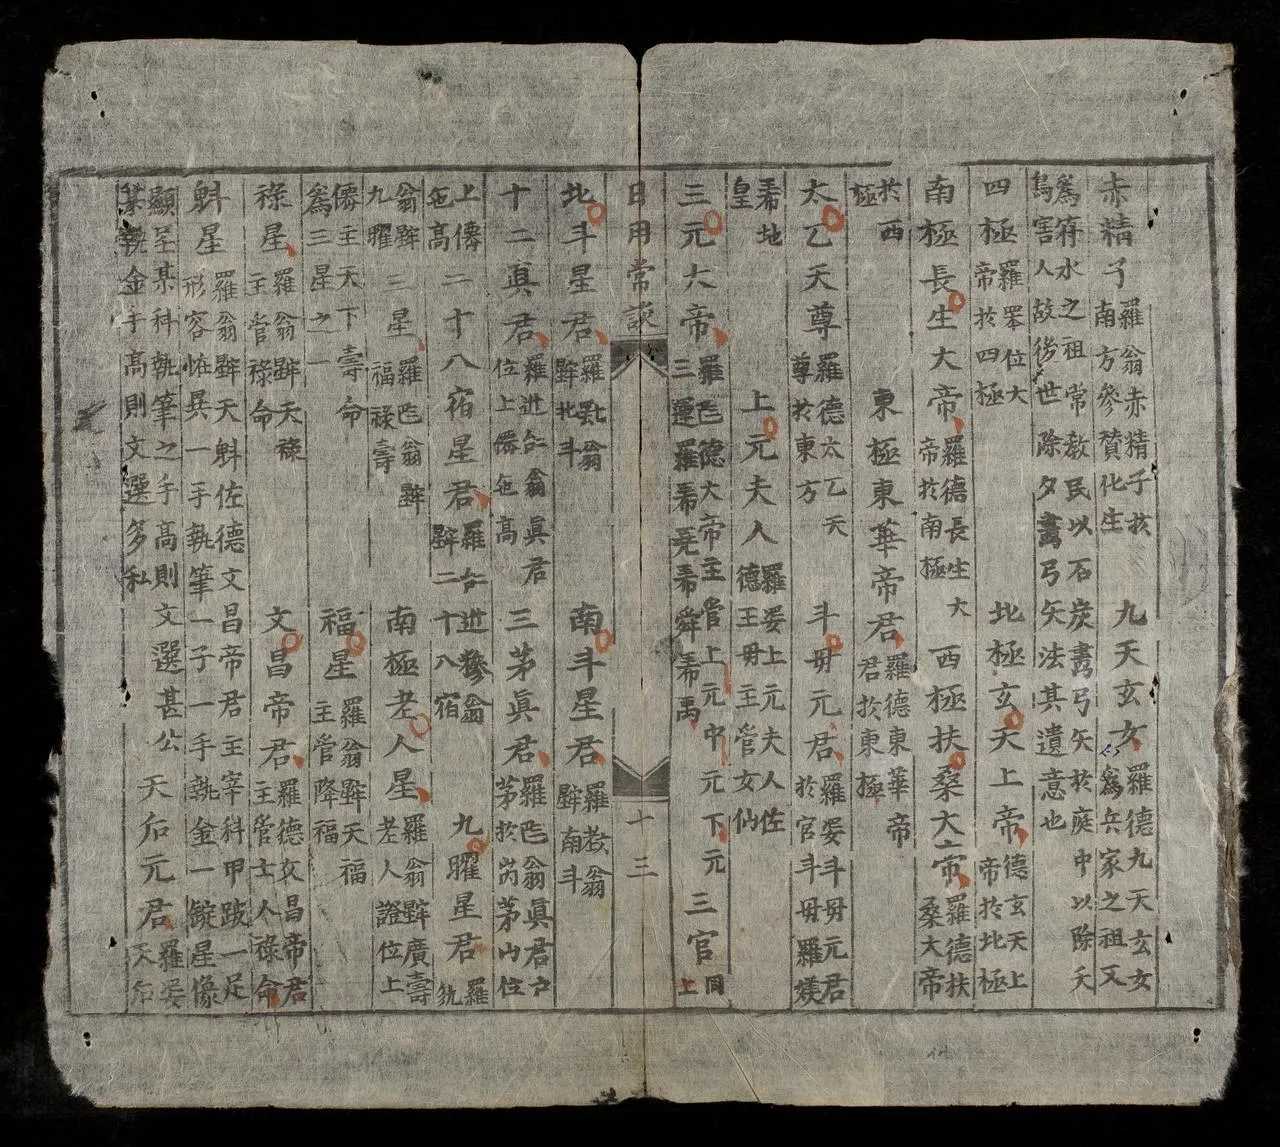 赤精子
羅翁赤精子於
南方參贊化生
九天玄女
羅德九天玄女
爲兵家之祖又
爲符水之祖常教民以石炭畵弓矢於庭中以除夭
烏害人故後世除夕畫弓矢法其遺意也
四極
羅罘位大
帝於四極
北極玄天上帝
德玄天上
帝於北極
南極長生大帝
羅德長生大
帝於南極
西極扶桑大帝
羅德扶
桑大帝
於西
極
東極東華帝君
羅德東華帝
君於東極
太乙天尊
羅德太乙天
尊於東方
斗母元君
羅妥斗母元君
於官斗母羅媄
希地
皇
上元夫人
羅妥上元夫人佐
德王母主管女仙
三元大帝
羅德大帝主管上元中元下元
三運羅希堯希舜希禹
三官
同
上
日用常談
十三
北斗星君
羅翁
北斗
南斗星君
羅教翁
南斗
十二眞君
羅近仁翁眞君
位上僊包高
三茅眞君
羅翁眞君
茅於芮茅山位
上僊
包高
二十八宿星君
羅近糝翁
二十八宿
九曜星君
羅
翁
九曜
三星
羅翁
福祿壽
南極老人星
羅翁廣壽
老人證位上
僊主天下壽命
爲三星之一
福星
羅翁天福
主管降福
祿星
羅翁天祿
主管祿命
文昌帝君
羅德文昌帝君
主管士人祿命
魁星
羅翁天魁佐德文昌帝君主宰科甲跛一足
形容恠異一手執筆一子一手執金一錠星像
顯呈某科執筆之手高則文選甚公
某執金手高則文選多私
天后元君
羅妥
天后